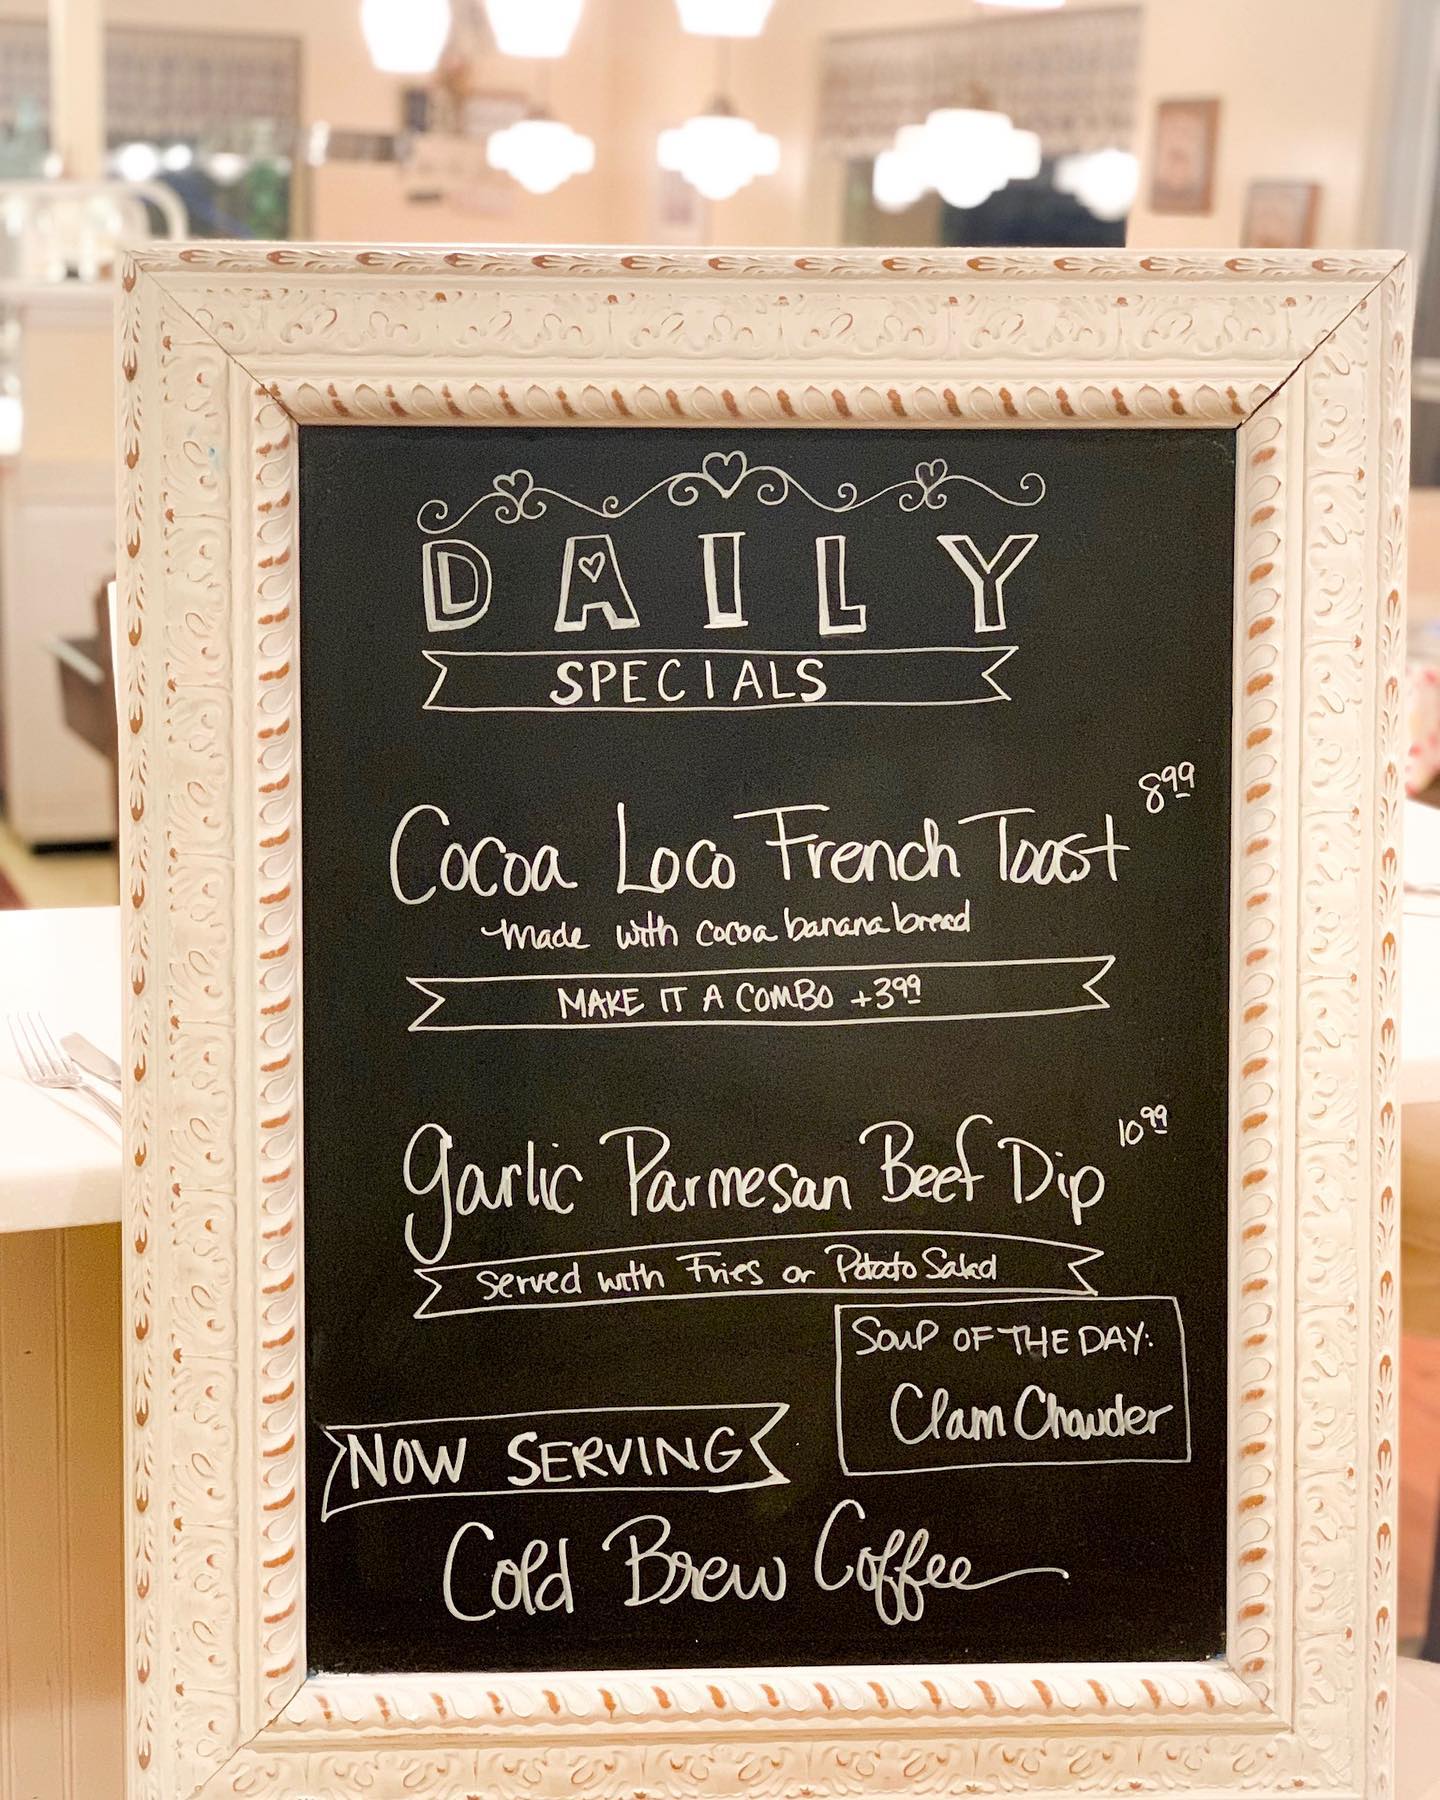 DAILY
SPECIALS
Cocoa Loco French Toast 8.99
Made with cocoa banana bread
MAKE IT A COMBO +3.99
Garlic Parmesan Beef Dip 10.99
served with Fries or Potato Salad
SOUP OF THE DAY:
Clam Chowder
NOW SERVING
Cold Brew Coffee